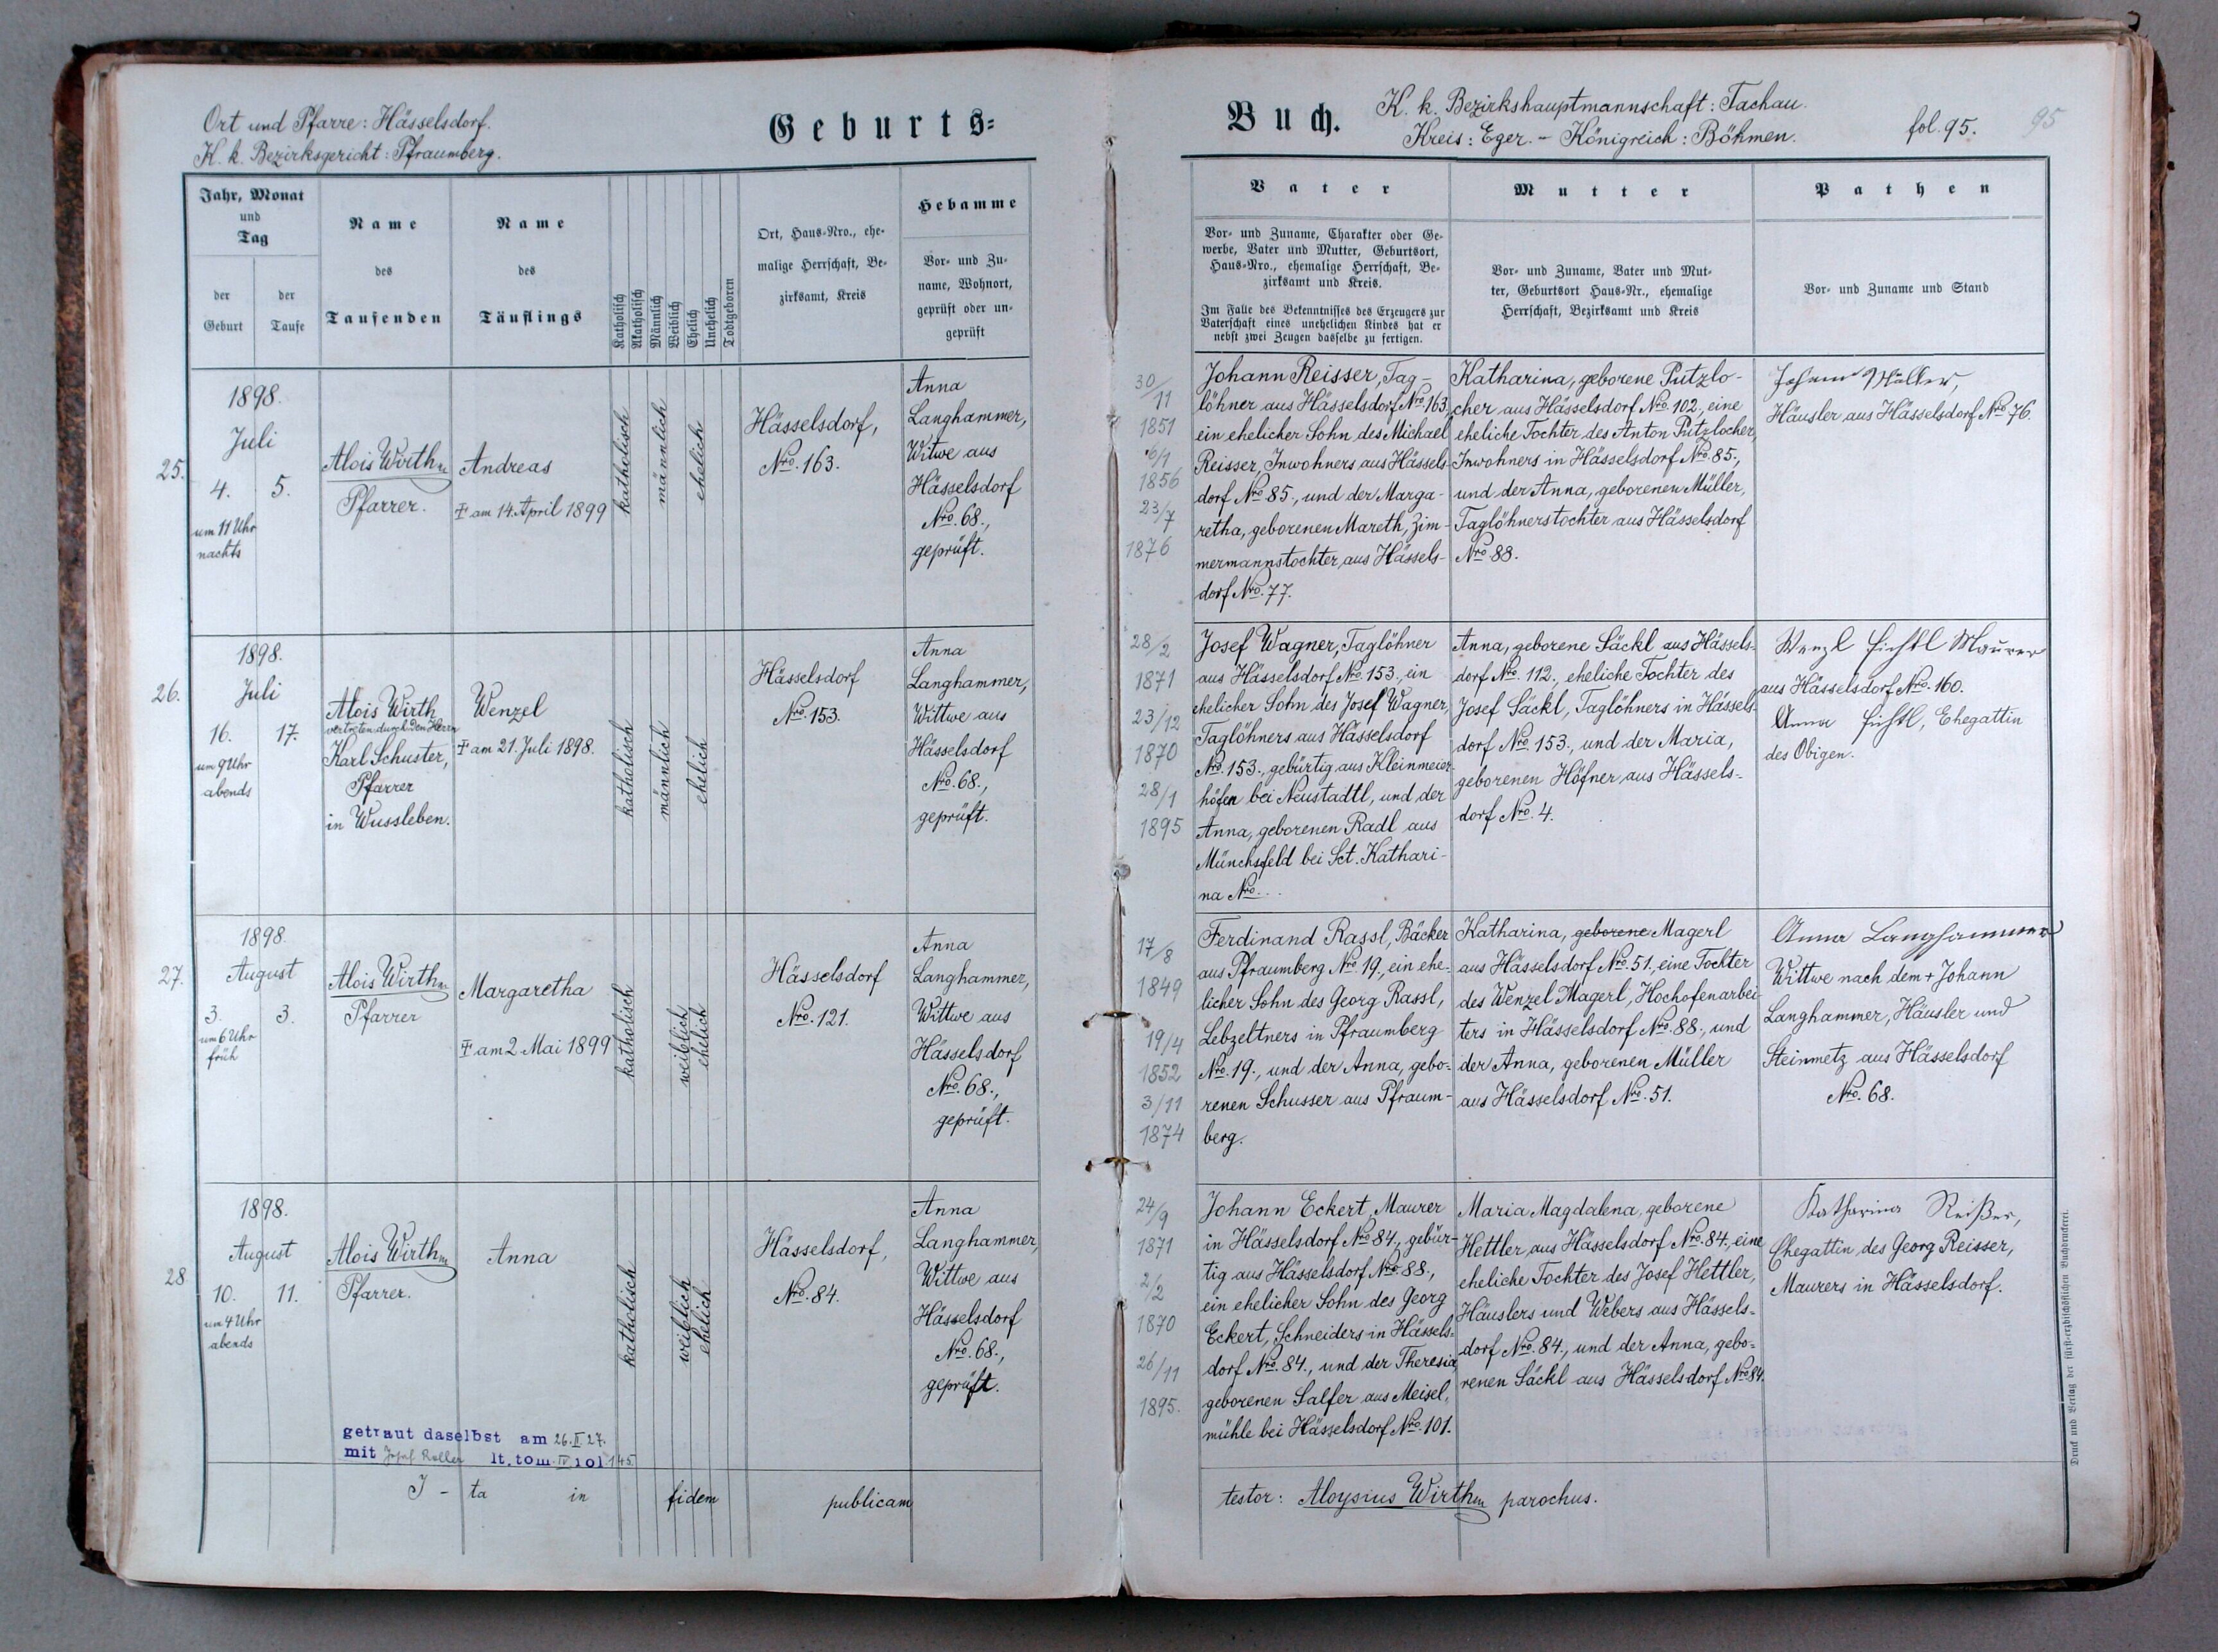 Ort und Pfarre: Hässelsdorf.
K. k. Bezirksgericht: Pfraumberg.
Geburts=
Jahr, Monat
und
Tag
der
Geburt
der
Taufe
Name
des
Taufenden
Name
des
Täuflings
Katholisch
Akatholisch
Männlich
Weiblich
Ehelich
Unehelich
Todtgeboren
Ort, Haus-Nro., ehe-
malige Herrschaft, Be-
zirksamt, Kreis
Hebamme
Vor- und Zu-
name, Wohnort,
geprüft oder un-
geprüft
25.
1898.
Juli
4. 5.
um 11 Uhr
nachts
Alois Wirth
Pfarrer.
Andreas
† am 14. April 1899
katholisch
männlich
ehelich
Hässelsdorf,
Nro. 163.
Anna
Langhammer,
Witwe aus
Hässelsdorf
Nro. 68.,
geprüft.
26.
1898.
Juli
16. 17.
um 9 Uhr
abends
Alois Wirth
vertreten durch den Herrn
Karl Schuster,
Pfarrer
in Wussleben.
Wenzel
† am 21. Juli 1898.
katholisch
männlich
ehelich
Hässelsdorf
Nro. 153.
Anna
Langhammer,
Wittwe aus
Hässelsdorf
Nro. 68.,
geprüft.
27.
1898.
August
3. 3.
um 6 Uhr
früh
Alois Wirth
Pfarrer
Margaretha
† am 2 Mai 1899
katholisch
weiblich
ehelich
Hässelsdorf
Nro. 121.
Anna
Langhammer,
Wittwe aus
Hässelsdorf
Nro. 68.,
geprüft.
28
1898.
August
10. 11.
um 4 Uhr
abends
Alois Wirth
Pfarrer.
Anna
katholisch
weiblich
ehelich
Hässelsdorf,
Nro. 84.
Anna
Langhammer,
Wittwe aus
Hässelsdorf
Nro. 68.,
geprüft.
getraut daselbst am 26.II.27.
mit Josef Roller lt. tom IV fol 145
I - ta in fidem publicam
Buch.
K. k. Bezirkshauptmannschaft: Tachau.
Kreis: Eger. - Königreich: Böhmen.
fol. 95.
95
Vater
Vor- und Zuname, Charakter oder Ge-
werbe, Vater und Mutter, Geburtsort,
Haus-Nro., ehemalige Herrschaft, Be-
zirksamt und Kreis.
Im Falle des Bekenntnisses des Erzeugers zur
Vaterschaft eines unehelichen Kindes hat er
nebst zwei Zeugen dasselbe zu fertigen.
Mutter
Vor- und Zuname, Vater und Mut-
ter, Geburtsort Haus-Nr., ehemalige
Herrschaft, Bezirksamt und Kreis
Pathen
Vor- und Zuname und Stand
30/11
1851
6/1
1856
23/7
1876
Johann Reisser, Tag-
löhner aus Hässelsdorf Nro. 163,
ein ehelicher Sohn des Michael
Reisser, Inwohners aus Hässels-
dorf Nro 85., und der Marga-
retha, geborenen Mareth, Zim-
mermannstochter aus Hässels-
dorf Nro. 77.
Katharina, geborene Putzlo-
cher aus Hässelsdorf Nro. 102, eine
eheliche Tochter des Anton Putzlocher,
Inwohners in Hässelsdorf Nro. 85.,
und der Anna, geborenen Müller,
Taglöhnerstochter aus Hässelsdorf
Nro. 88.
Johann Müller,
Häusler aus Hässelsdorf Nro. 76.
28/2
1871
23/12
1870
28/1
1895
Josef Wagner, Taglöhner
aus Hässelsdorf Nro. 153., ein
ehelicher Sohn des Josef Wagner,
Taglöhners aus Hässelsdorf
Nro. 153., gebürtig aus Kleinmeier-
höfen bei Neustadtl, und der
Anna, geborenen Radl aus
Münchsfeld bei Sct. Kathari-
na Nro...
Anna, geborene Säckl aus Hässels-
dorf Nro. 112., eheliche Tochter des
Josef Säckl, Taglöhners in Hässels-
dorf Nro. 153., und der Maria,
geborenen Höfner aus Hässels-
dorf Nro. 4.
Wenzl Fichtl Maurer
aus Hässelsdorf Nro. 160.
Anna Fichtl, Ehegattin
des Obigen.
17/8
1849
19/4
1852
3/11
1874
Ferdinand Rassl, Bäcker
aus Pfraumberg Nro. 19., ein ehe-
licher Sohn des Georg Rassl,
Lebzeltners in Pfraumberg
Nro. 19., und der Anna, gebo-
renen Schusser aus Pfraum-
berg.
Katharina, geborene Magerl
aus Hässelsdorf Nro. 51., eine Tochter
des Wenzel Magerl, Hochofenarbei-
ters in Hässelsdorf Nro. 88., und
der Anna, geborenen Müller
aus Hässelsdorf Nro. 51.
Anna Langhammer
Wittwe nach dem + Johann
Langhammer, Häusler und
Steinmetz aus Hässelsdorf
Nro. 68.
24/9
1871
2/2
1870
26/11
1895.
Johann Eckert, Maurer
in Hässelsdorf Nro 84., gebür-
tig aus Hässelsdorf Nro. 88.,
ein ehelicher Sohn des Georg
Eckert, Schneiders in Hässels-
dorf Nro. 84., und der Theresia
geborenen Salfer aus Meisel-
mühle bei Hässelsdorf Nro. 101.
Maria Magdalena, geborene
Hettler aus Hässelsdorf Nro. 84., eine
eheliche Tochter des Josef Hettler,
Häuslers und Webers aus Hässels-
dorf Nro. 84., und der Anna, gebo-
renen Säckl aus Hässelsdorf Nro 84.
Katharina Reißer,
Ehegattin des Georg Reisser,
Maurers in Hässelsdorf.
testor: Aloysius Wirth parochus.
Druck und Verlag der fürst-erzbischöflichen Buchdruckerei.